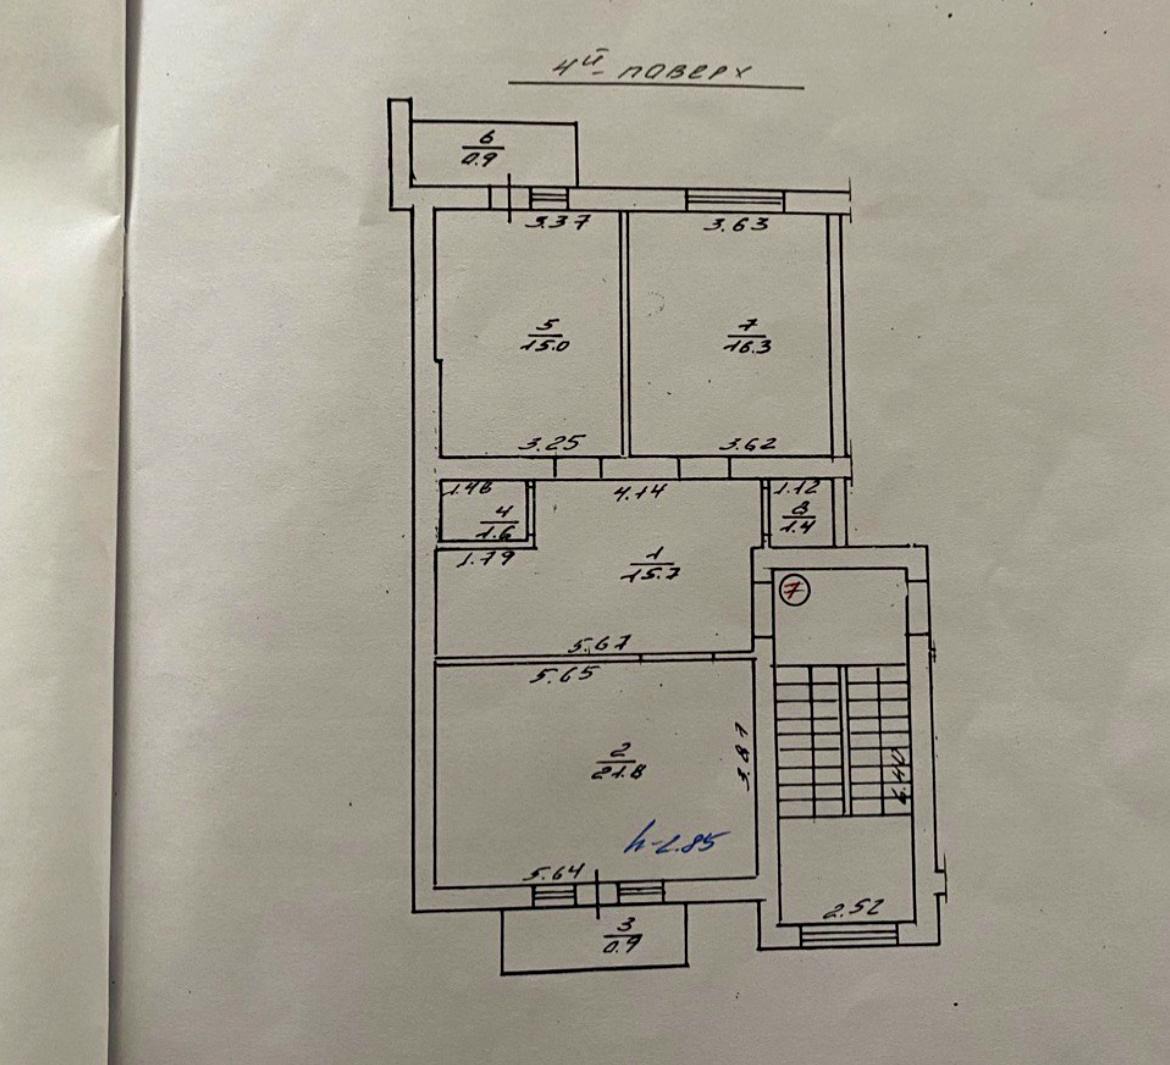 4й- поверх
6
0.9
3.37
3.63
5
15.0
7
16.3
3.25
3.62
1.48
4.14
1.12
4
1.6
8
1.4
1.79
1
15.7
7
5.67
5.65
2
21.8
3.87
6.40
h-2.85
5.64
2.52
3
0.9